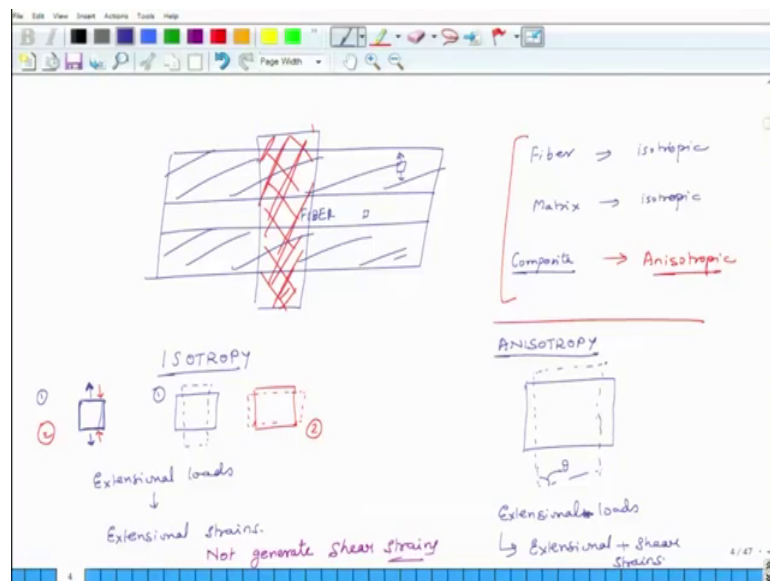 File Edit View Insert Actions Tools Help
B I
Page Width
Fiber → isotropic
Matrix → isotropic
FIBER
Composite → Anisotropic
ISOTROPY
ANISOTROPY
① ①
② ②
θ
Extensional loads
↓
Extensional strains.
Not generate shear strains
Extensional loads
↳ Extensional + shear
strains.
4/47
4